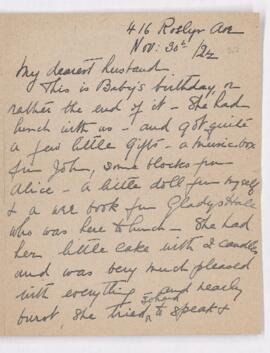 416 Roslyn Ave
Nov: 30th /24
My dearest husband
This is Baby's birthday, or
rather the end of it - She had
lunch with us - and got quite
a few little gifts - a music box
from John, some blocks from
Alice - a little doll from myself
& a wee book from Gladys Hale
who was here to lunch - She had
her little cake with 2 candles
and was very much pleased
with everything and nearly
burst, she tried so hard to speak &